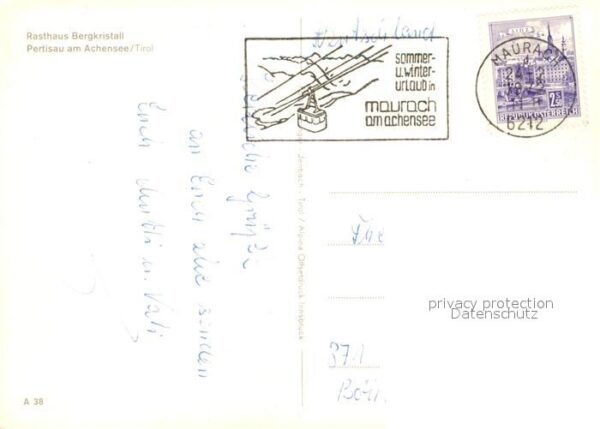 Rasthaus Bergkristall
Pertisau am Achensee/Tirol
Deutschland
sommer-
u.winter-
urlaub in
maurach
am achensee
MAURACH
6212
REPUBLIK ÖSTERREICH
Grüße
an Euch alle senden
Euch Mutti u. Vati
Jenbach - Tirol / Alpina Offsetdruck Innsbruck
privacy protection
Datenschutz
371
A 38